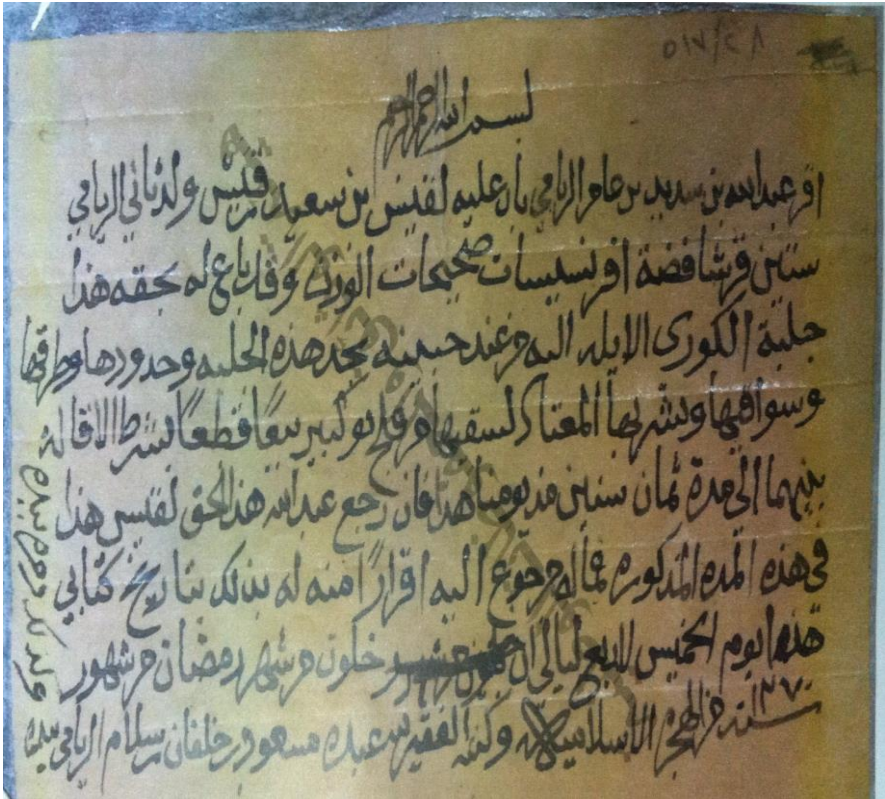 ٥١٧/٢٨
بسم الله الرحمن الرحيم
اقر عبدالله بن سديد بن عامر الريامي بان عليه لقيس ابن سعيد بن قيس ولد ثاني الريامي
ستين قرشا فضة افرنسيسات صحيحات الوزن وقد باع له بحقه هذا
جلبة الكوري الايله اليه من عند حبينه بحد هذه الجلبه وحدودها وطرقها
وسواقيها وشربها المعتاد لسقيها من فلج بو كبير بيعًا قطعًا بشرط الاقاله
بينهما الى مدة ثمان سنين مذ يومنا هذا فان رجع عبدالله هذا الحق لقيس هذا
في هذه المده المذكوره فماله مرجوع اليه اقرارًا منه له بذلك بتاريخ كتابي
هذا يوم الخميس لاربع ليالي ان خلون من شهر رمضان من شهور
سنة ١٣٧٠ من الهجره الاسلاميه وكتبه الفقير لله عبده مسعود بن خلفان بن سلام الريامي بيده